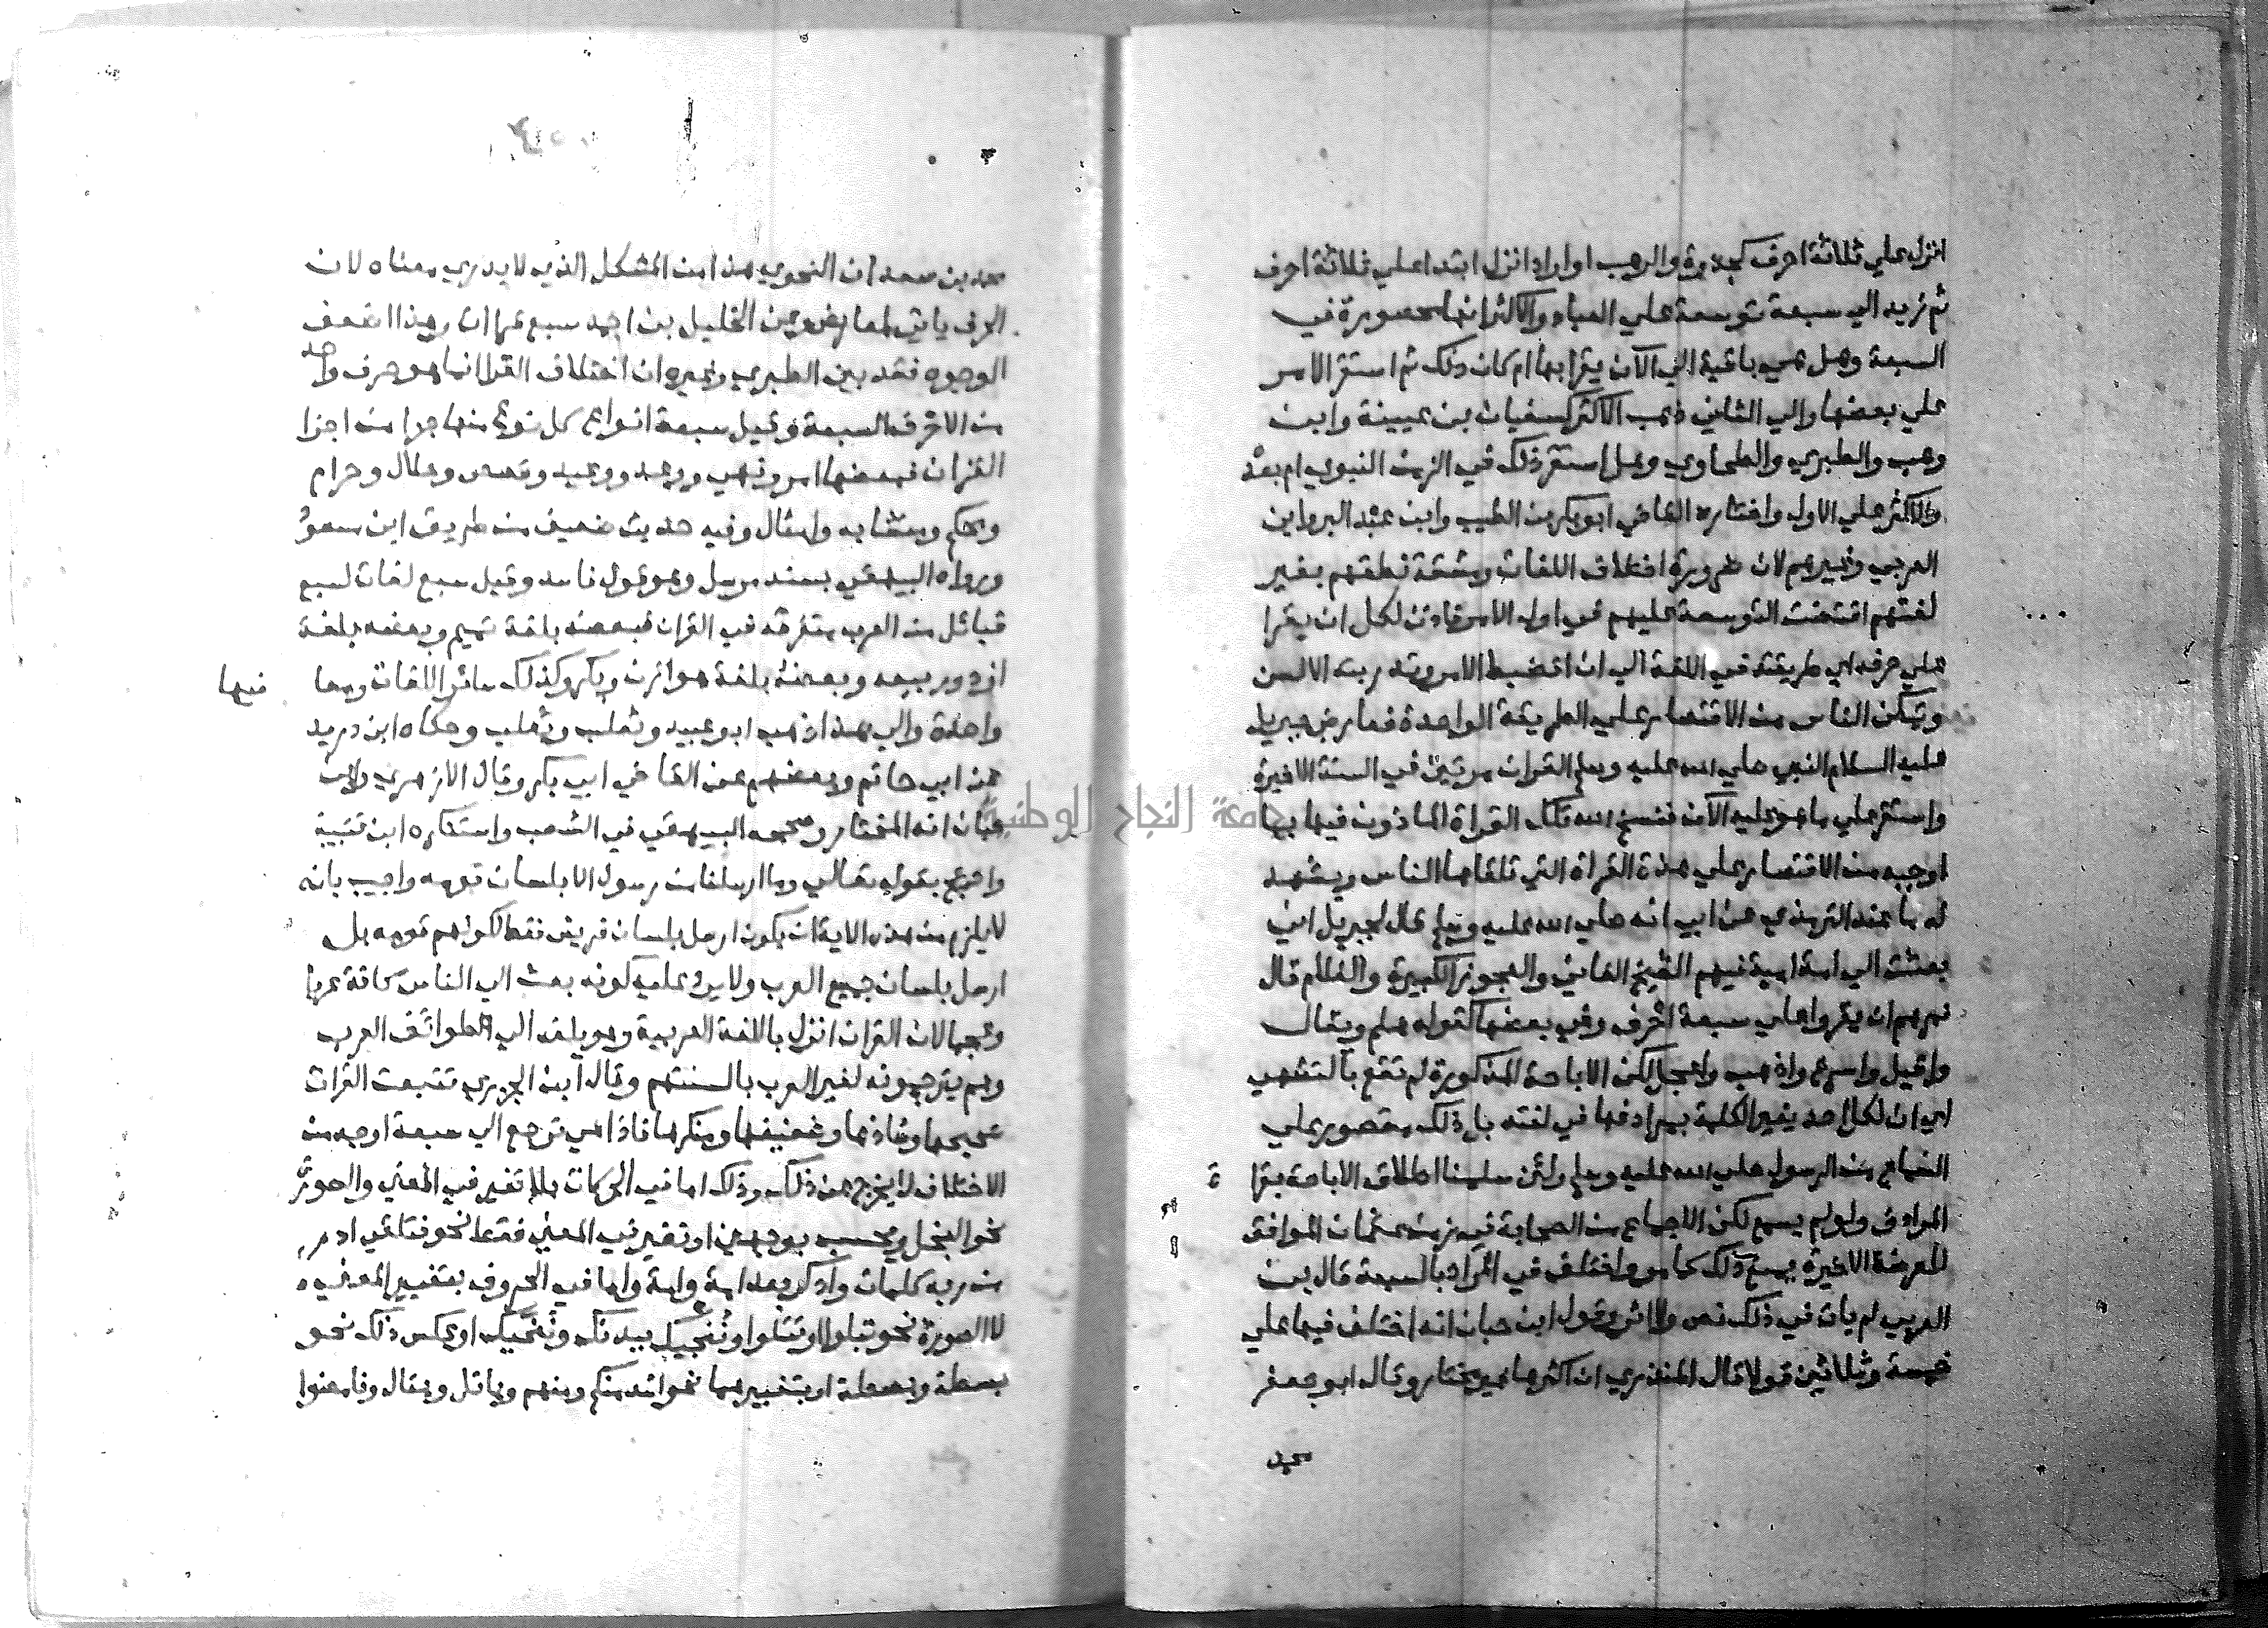 انزل علي ثلاثة احرف كجذوة والرهب او اراد انزل ابتدا علي ثلاثة احرف
ثم زيد الي سبعة توسعة علي العباد والاكثر انها محصورة في
السبعة وهل هي باقية الي الآن يقرا بها ام كان ذلك ثم استقر الامر
علي بعضها والي الثاني ذهب الاكثر كسفيان بن عيينة وابن
وهب والطبري والطحاوي وهل استقر ذلك في الزمن النبوي ام بعده
والاكثر علي الاول واختاره القاضي ابو بكر بن الطيب وابن عبد البر وابن
العربي وغيرهم لان ضرورة اختلاف اللغات ومشقة نطقهم بغير
لغتهم اقتضت التوسعة عليهم في اول الامر فاذن لكل ان يقرا
علي حرفه اي طريقته في اللغة الي ان انضبط الامر وتدربت الالسن
وتمكن الناس من الاقتصار علي الطريقة الواحدة فعارض جبريل
عليه السلام النبي صلي الله عليه وسلم القران مرتين في السنة الاخيرة
واستقر علي ما هو عليه الآن فنسخ الله تلك القراة الماذون فيها بما
اوجبه من الاقتصار علي هذة القراة التي تلقاها الناس ويشهد
له ما عند الترمذي عن ابي انه صلي الله عليه وسلم قال لجبريل اني
بعثت الي امة امية فيهم الشيخ الفاني والعجوز الكبيرة والغلام قال
فمرهم ان يقروا علي سبعة احرف وفي بعضها كقوله هلم وتعال
واقبل واسرع واذهب واعجل لكن الاباحة المذكورة لم تقع بالتشهي
اي ان لكل احد يغير الكلمة بمرادفها في لغته بل ذلك مقصور علي
السماع من الرسول صلي الله عليه وسلم ولئن سلمنا اطلاق الاباحة بقراة
المرادف ولو لم يسمع لكن الاجماع من الصحابة في زمن عثمان الموافق
للعرضة الاخيرة يمنع ذلك كما مر واختلف في المراد بالسبعة قال بن
العربي لم يات في ذلك نص ولا اثر وقول ابن حبان انه اختلف فيها علي
خمسة وثلاثين قولا قال المنذري ان اكثرها غير مختار وقال ابو جعفر
محمد
محمد بن سعدان النحوي هذا من المشكل الذي لا يدري معناه لان
الحرف ياتي لمعان وعن الخليل بن احمد سبع قراات وهذا اضعف
الوجوه فقد بين الطبري وغيره ان اختلاف القرا انما هو حرف واحد
من الاحرف السبعة وقيل سبعة انواع كل نوع منها جزا من اجزا
القران فبعضها امر ونهي ووعد ووعيد وقصص وحلال وحرام
ومحكم ومتشابه وامثال وفيه حديث ضعيف من طريق ابن مسعود
ورواه البيهقي بسند مرسل وهو قول فاسد وقيل سبع لغات لسبع
قبائل من العرب متفرقه في القران فبعضه بلغة تميم وبعضه بلغة
ازد وربيعه وبعضه بلغة هوازن وبكر وكذلك سائر اللغات ومعانيها
واحدة والي هذا ذهب ابو عبيد وثعلب وحكاه ابن دريد
عن ابي حاتم وبعضهم عن القاضي ابي بكر وقال الازهري وابن
حبان انه المختار وصححه البيهقي في الشعب واستنكره ابن قتيبة
واحتج بقوله تعالي وما ارسلنا من رسول الا بلسان قومه واجيب بانه
لا يلزم من هذه الاية ان يكون ارسل بلسان قريش فقط لكونهم قومه بل
ارسل بلسان جميع العرب ولا يرد عليه كونه بعث الي الناس كافة عربا
وعجما لان القران انزل باللغة العربية وهو بلغه الي طوائف العرب
وهم يترجمونه لغير العرب بالسنتهم وقال ابن الجزري تتبعت القراات
صحيحها وشاذها وضعيفها ومنكرها فاذا هي ترجع الي سبعة اوجه من
الاختلاف لا يخرج عن ذلك وذلك اما في الحركات بلا تغير في المعني والصورة
نحو البخل ويحسب بوجهين او تغير في المعني فقط نحو فتلقي ادم
من ربه كلمات وادكر بعد امة وامة واما في الحروف بتغيير المعني
لا الصورة نحو تبلوا وتتلوا وننجيك ببدنك وننحيك او عكس ذلك نحو
بسطة وبصطة او بتغييرهما نحو اشد منكم ومنهم وياتل ويتال وفامضوا